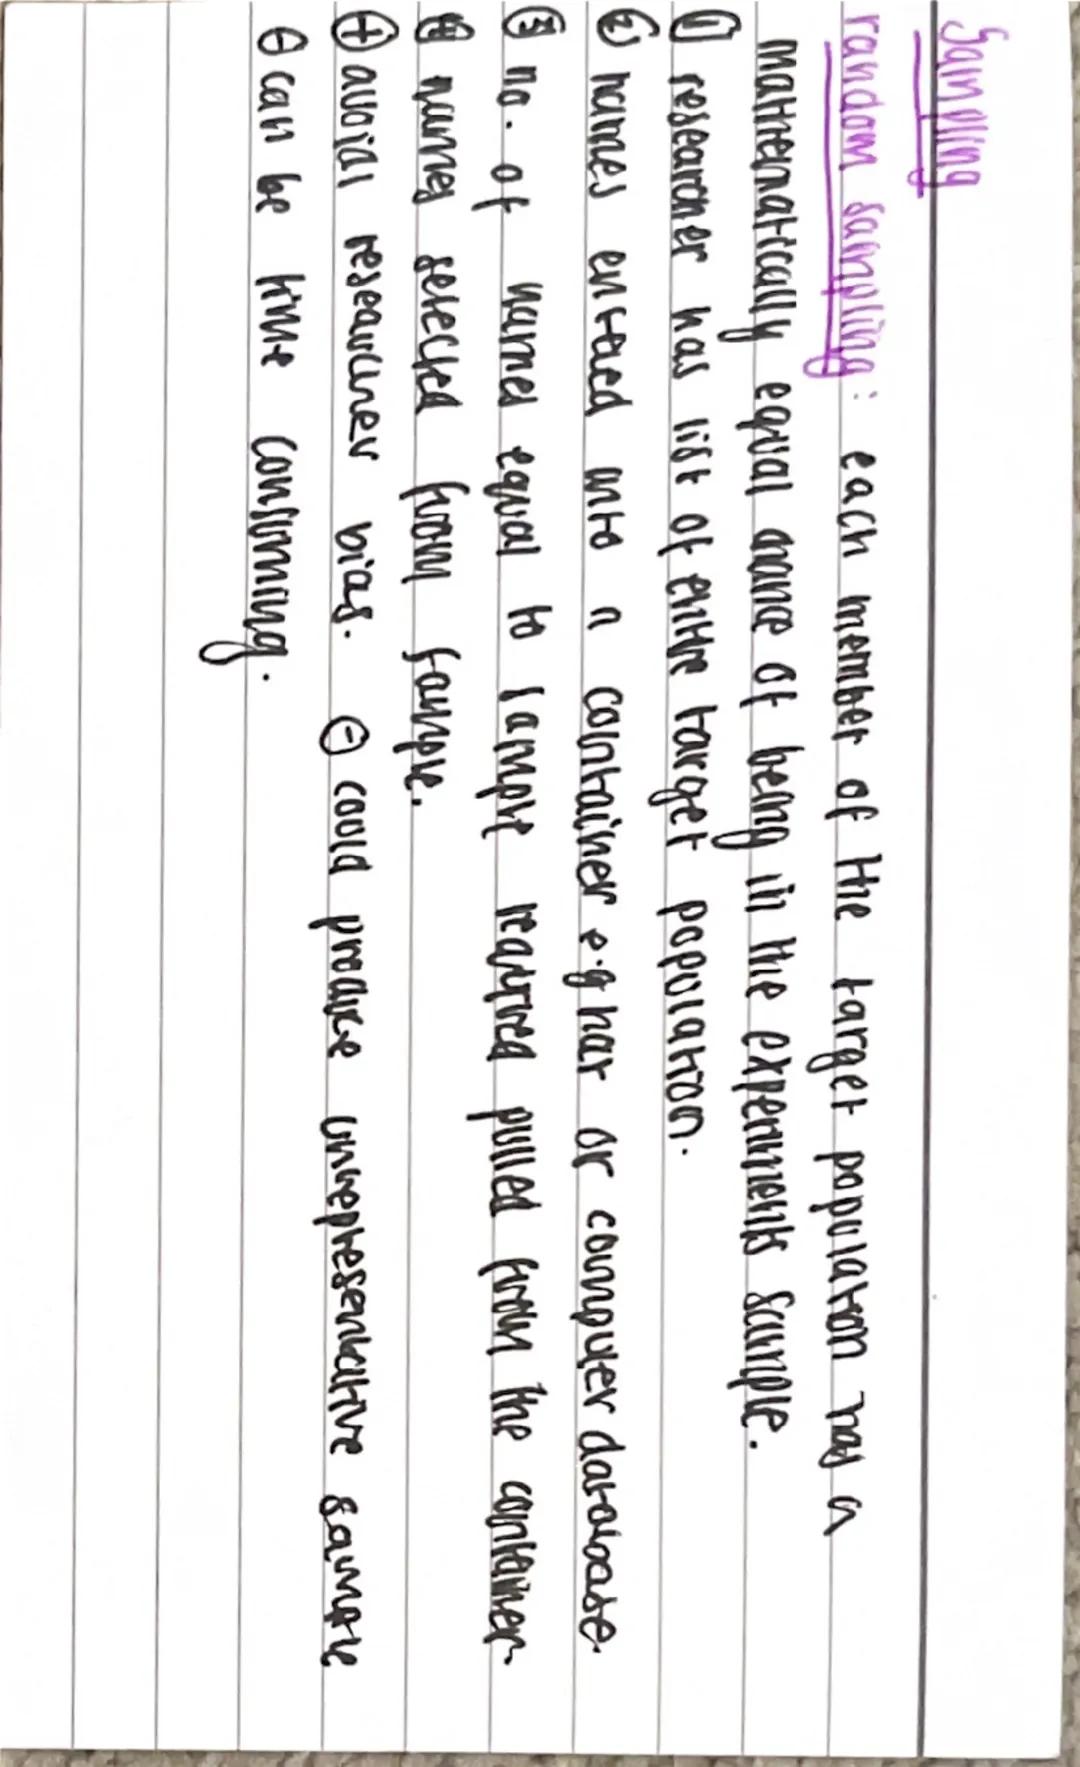 Sampling
random sampling: each member of the target population has a
mathematically equal chance of being in the experiments sample.
① researcher has list of entire target population.
② names entered into a container e.g hat or computer database.
③ no. of names equal to sample required pulled from the container
④ names selected from sample.
⊕ avoids researcher bias. ⊖ could produce unrepresentative sample
⊖ can be time consuming.